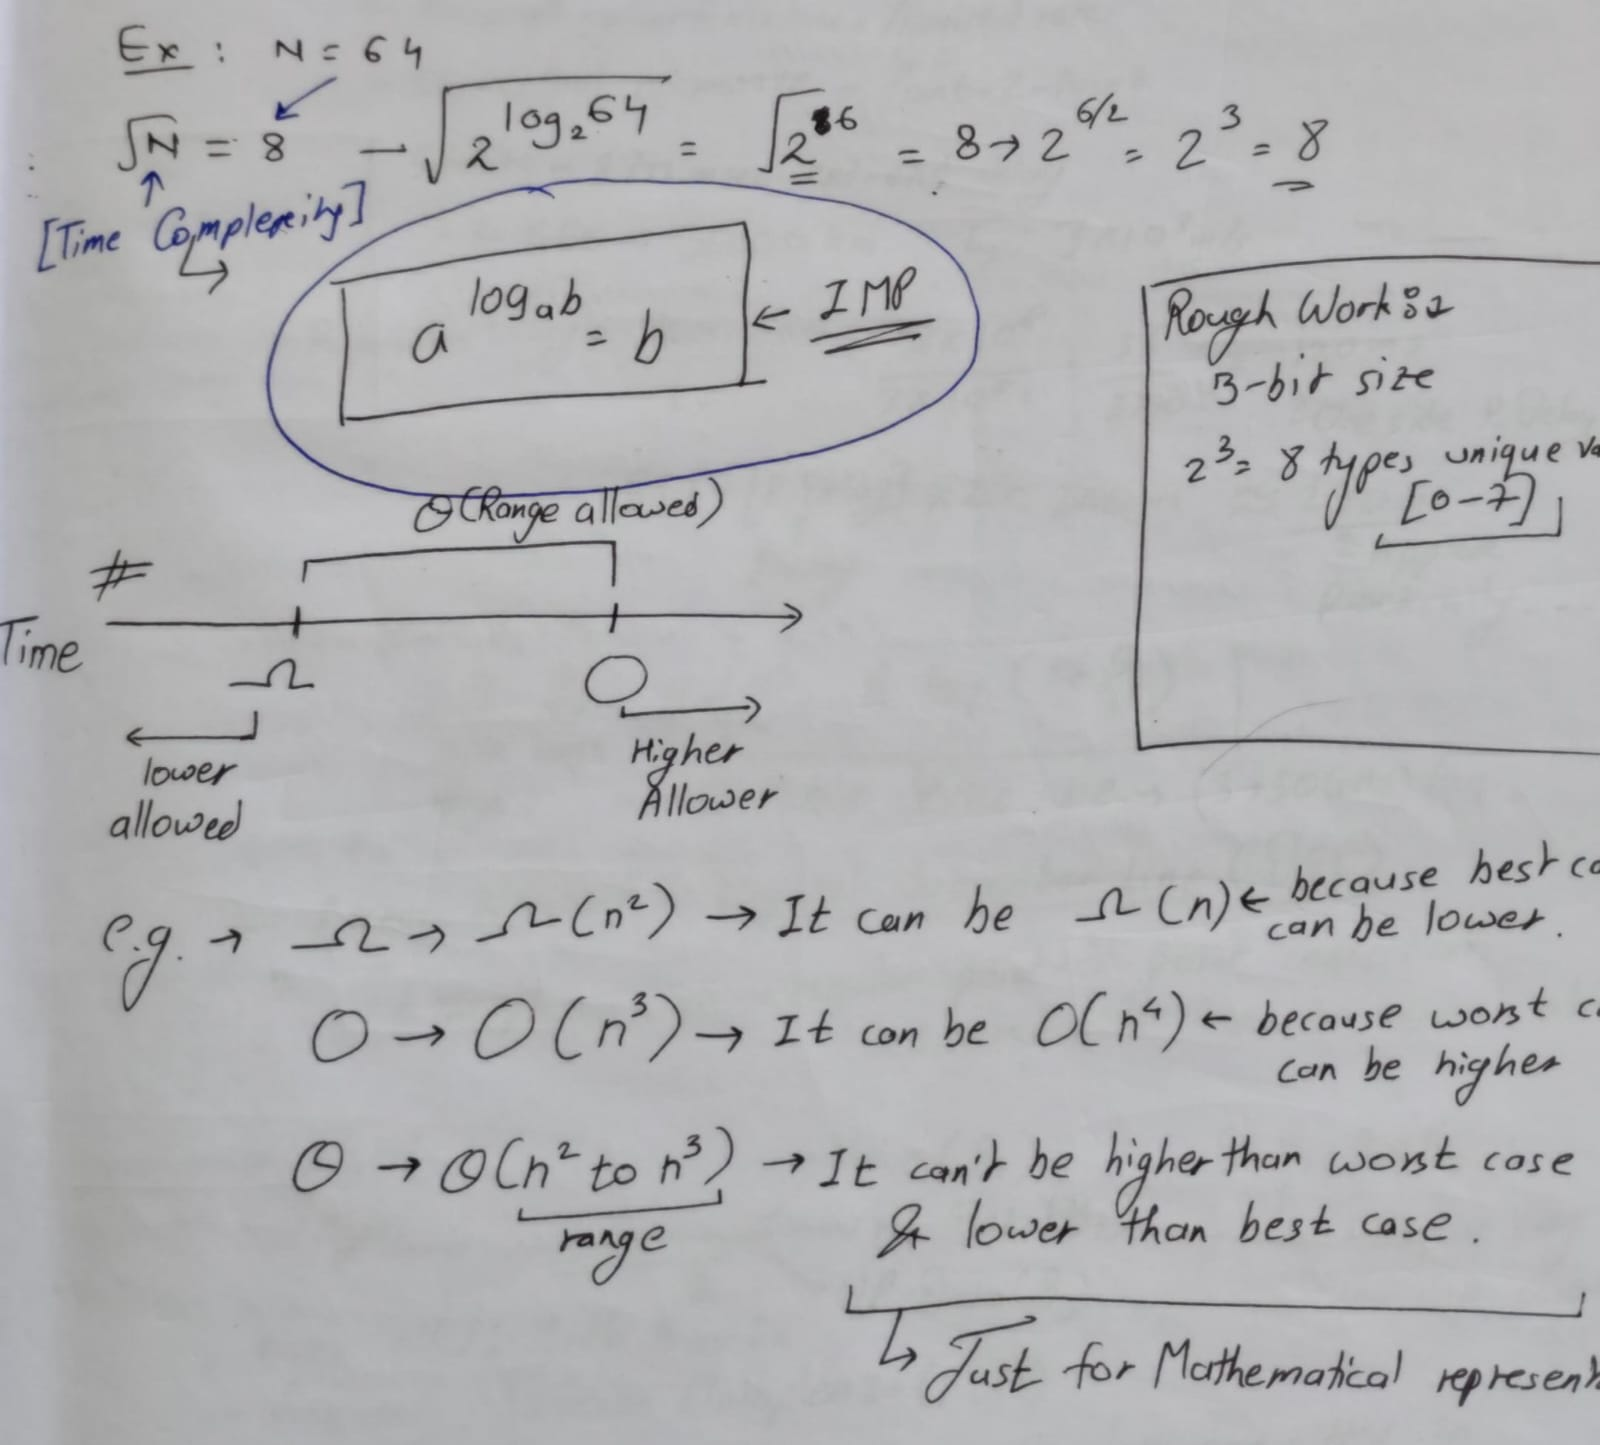 Ex : N = 64
√N = 8 — √2^log₂64 = √2^6 = 8 → 2^6/2 = 2³ = 8
[Time Complexity]
a^logₐb = b ← IMP
Rough Work :
3-bit size
2³ = 8 types unique
[0-7]
Θ (Range allowed)
#
Time
Ω O
lower
allowed
Higher
Allower
e.g. → Ω → Ω(n²) → It can be Ω(n) ← because best
can be lower.
O → O(n³) → It can be O(n⁴) ← because worst
can be higher
Θ → Θ(n² to n³) → It can't be higher than worst case
& lower than best case.
range
↳ Just for Mathematical